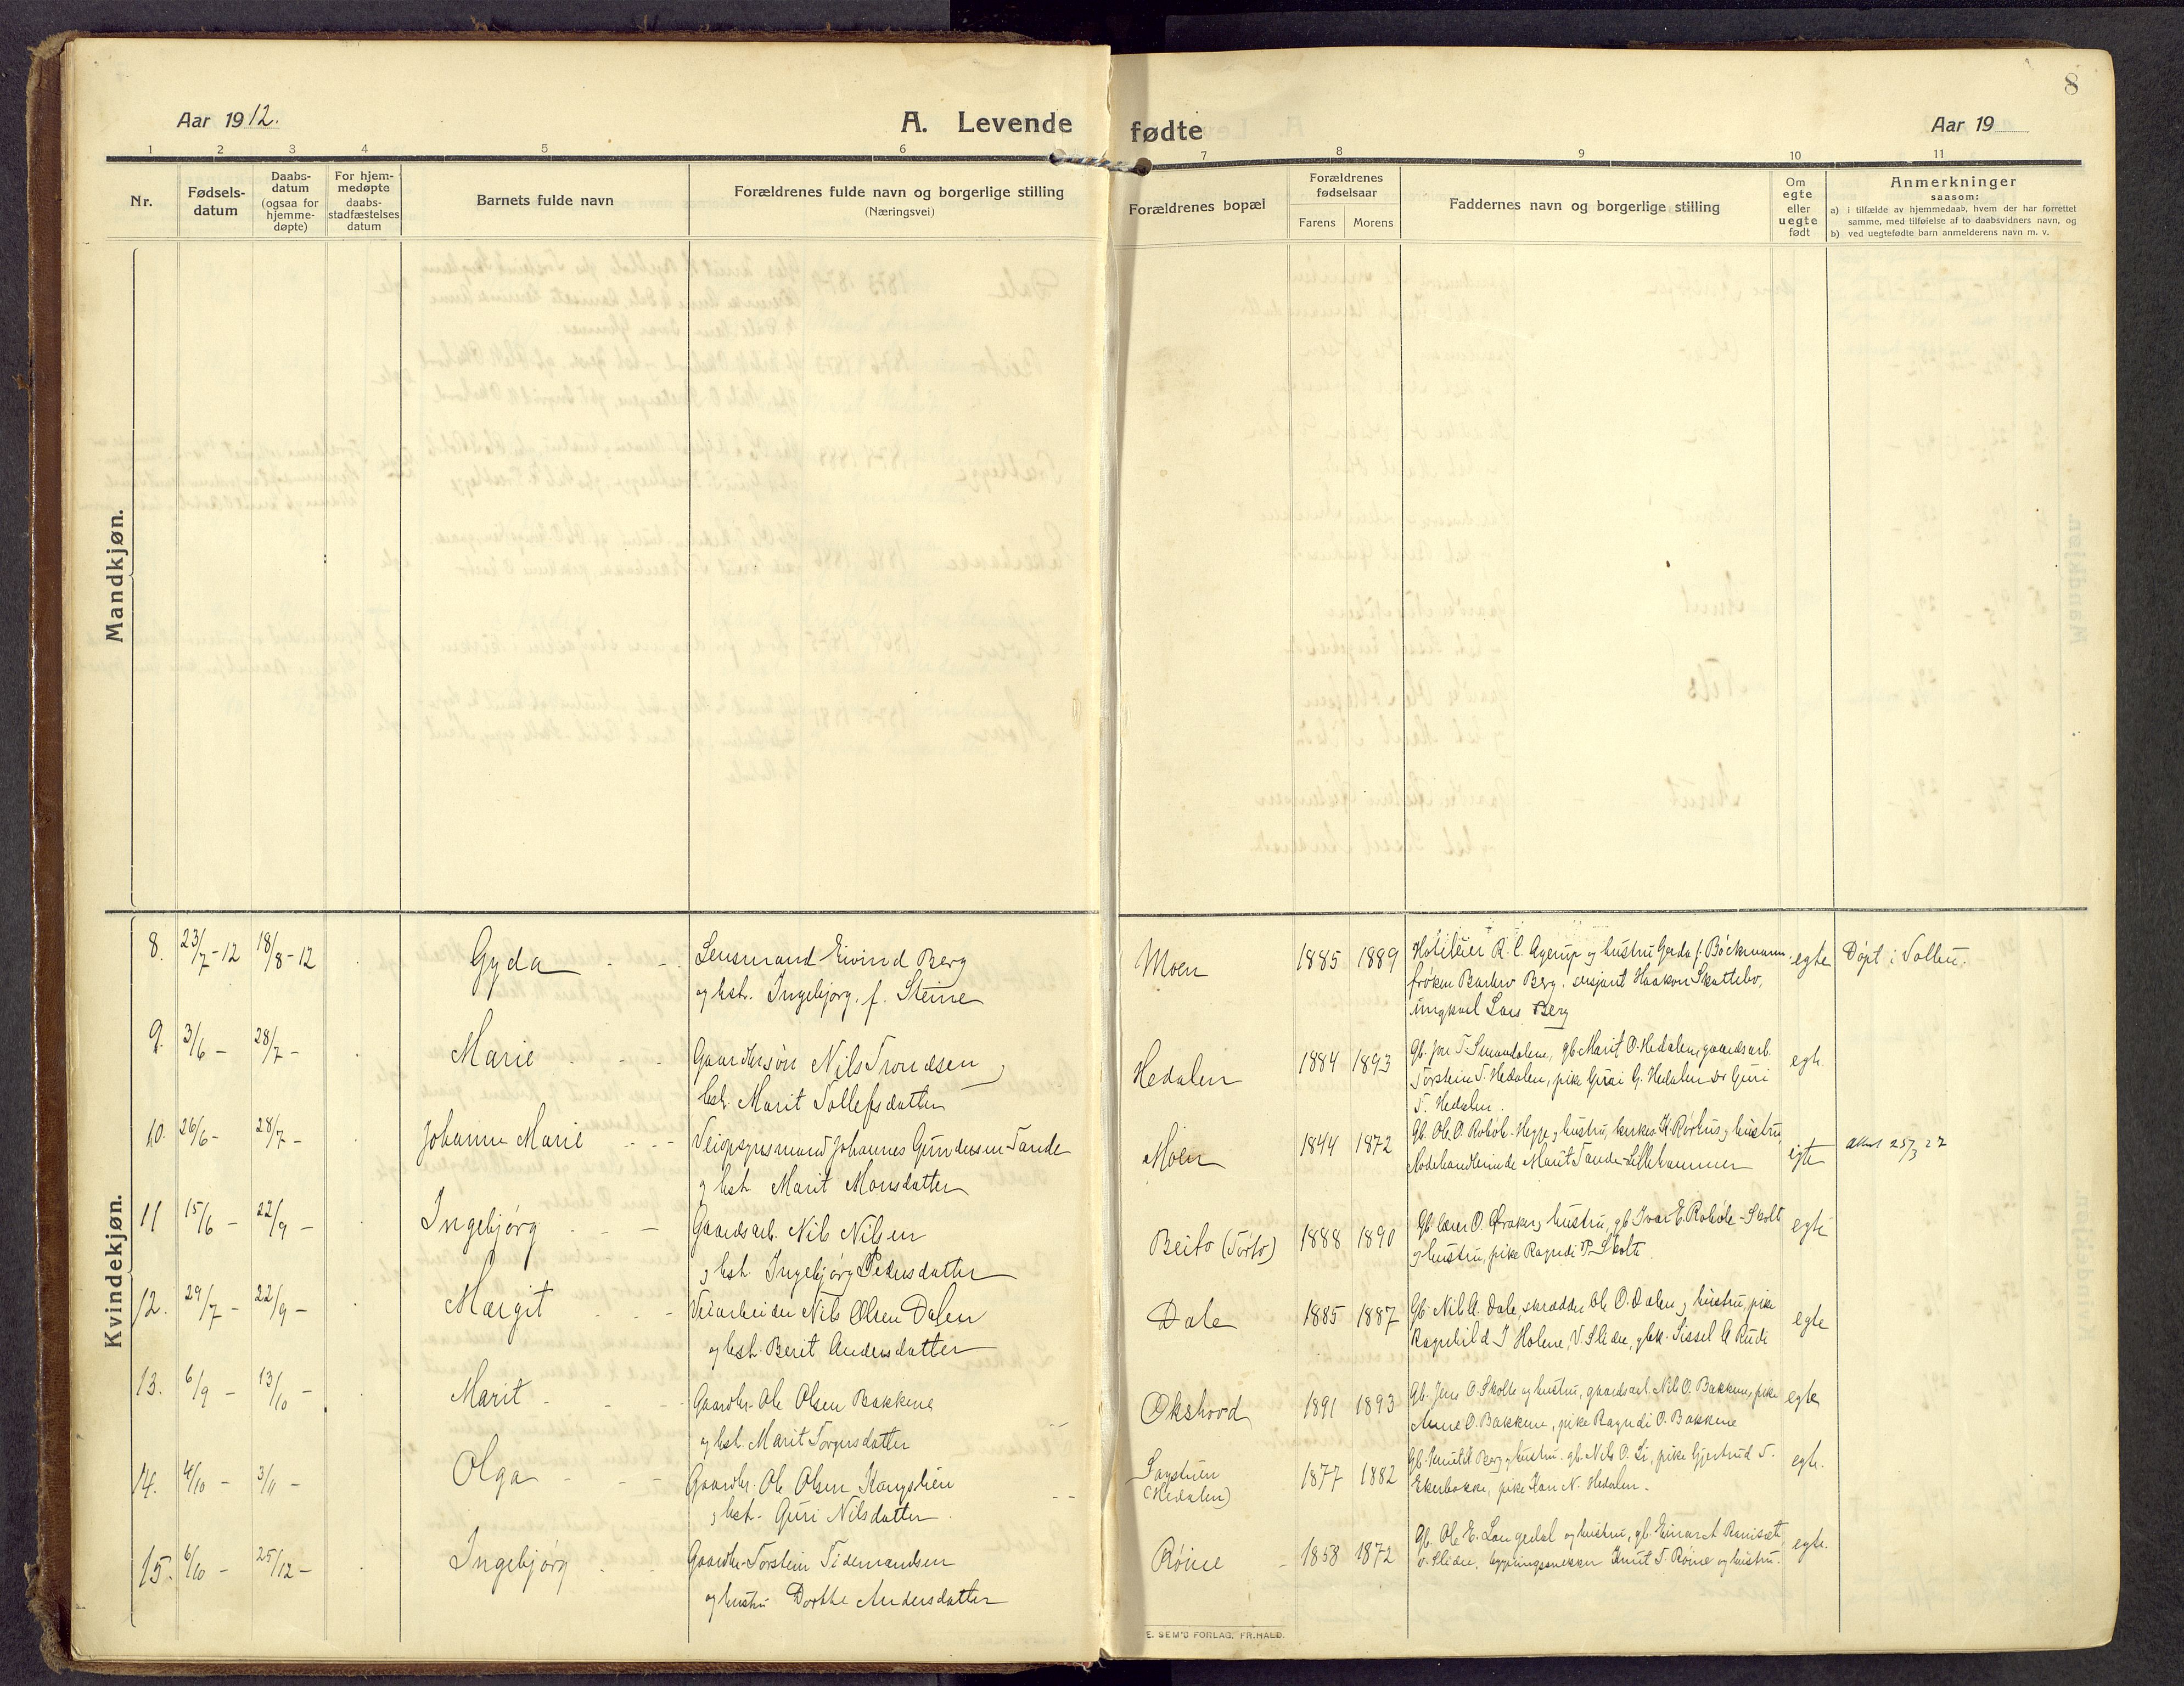 8
Aar 1912.
A. Levende fødte
Aar 19
1 2 3 4 5 6 7 8 9 10 11
Nr.
Fødsels-
datum
Daabs-
datum
(ogsaa for
hjemme-
døpte)
For hjem-
medøpte
daabs-
stadfæstelses
datum
Barnets fulde navn
Forældrenes fulde navn og borgerlige stilling
(Næringsvei)
Forældrenes bopæl
Forældrenes
fødselsaar
Farens Morens
Faddernes navn og borgerlige stilling
Om
egte
eller
uegte
født
Anmerkninger
saasom:
a) i tilfælde av hjemmedaab, hvem der har forrettet
samme, med tilføielse af to daabsvidners navn, og
b) ved uegtefødte barn anmelderens navn m. v.
Mandkjøn.
Kvindekjøn.
8. 23/7-12 18/8-12 Gyda
Lensmand Eivind Berg
og hst. Ingebjørg. f. Steine
Moen 1885 1889
Hotileier R. C. Agerup og hustru Gerda f. Böckmann
frøken Barbro Berg. sersjant Haakon Skattebo,
ungkarl Lars Berg
egte Døpt i Vollen.
9. 3/6 - 28/7 - Marie
Gaardbr.søn Nils Trondsen
hst. Marit Tollefsdatter
Hedalen 1884 1893
Gb. Jon T. Smaadalene, gb Marit O. Hedalen, gaardsarb.
Torstein T. Hedalen, pike Guri G. Hedalen Guri
T. Hedalen.
egte.
10. 26/6 - 28/7 - Johanne Marie
Veiopsynsmand Johannes Gundersen Tande
og hst. Marit Monsdatter
Moen 1844 1872
Gb. Ole O Robøle-Hegge og hustru, kirkes. K. Rørhus og hustru,
Modehandlerinde Marit Tande-Lillehammer
egte 25/3 27
11 15/6 - 22/9 - Ingebjørg
Gaardsarb. Nils Nilsen
og hst. Ingebjørg Pedersdatter
Beito (Torto) 1888 1890
Gb. lærer O. og hustru, gb Ivar E. Robøle-Skolt
og hustru, pike Ragndi P. Skolt.
egte
12. 29/7 - 22/9 - Margit
Veiarbeider Nils Olsen Dalen
og hst. Berit Andersdatter
Dale 1885 1887
Gb. Nils A. Dale, skrædder Ole O. Dalen og hustru, pike
Ragnhild J Holene, V. Slidre, gbk. Sissel A Rudi
egte
13. 6/9 - 13/10 - Marit
Gaardbr. Ole Olsen Bakkene
og hst. Marit Torgersdatter
Okshovd 1891 1893
Gb. Jens O. Skolt og hustru, gaardsarb. Nils O. Bakkene, pike
Anne O. Bakkene, pike Ragndi O. Bakkene
egte
14. 4/10 - 3/11 - Olga
Gaardbr. Ole Olsen
og hst. Guri Nilsdatter
(Hedalen) 1877 1882
Gb. Knut K Berg og hustru. gb. Nils O. Li, pike Gjertrud T.
Ekerbakke, pike Kari N. Hedalen.
egte.
15. 6/10 - 25/12 - Ingebjørg
Gaardbr. Torstein Tidemandsen
og hustru Dorthe Andersdatter
Røine 1858 1872
Gb. Ole E. Langedal og hustru, gb. Einar Ranisæt
V. Slidre, bygningssnekker Knut T. Røine og hustru.
egte.
E. SEM'S FORLAG, FR.HALD.